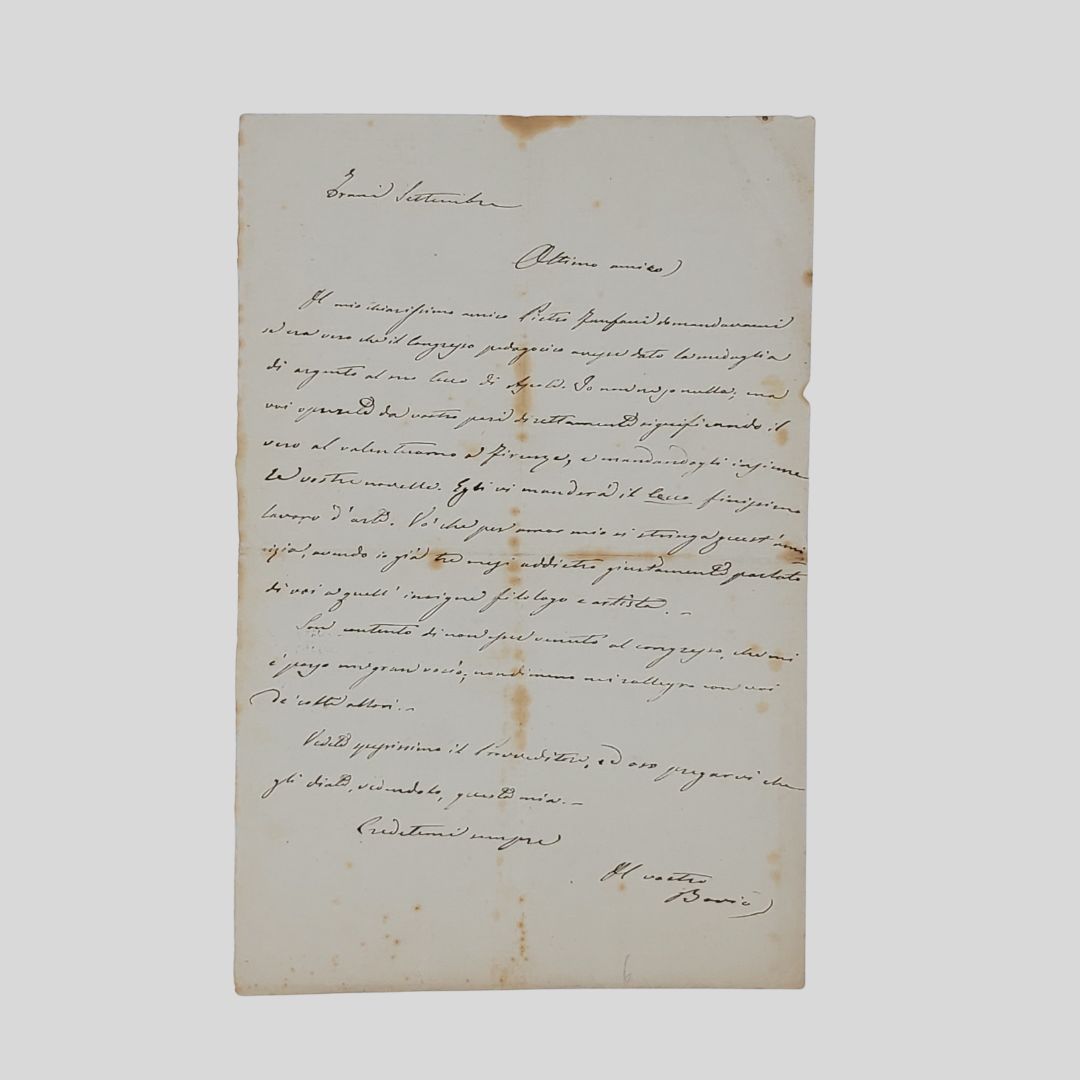 Trani Settembre
Ottimo amico
Il mio chiarissimo amico Pietro Fanfani domandavami
se era vero che il Congresso pedagogico avesse dato la medaglia
di argento al suo Cecco di Ascoli. Io non ne so nulla; ma
voi operete da vostro pari direttamente significando il
vero al valentuomo a Firenze, e mandandogli insieme
le vostre novelle. Egli vi manderà il Cecco finissimo
lavoro d'arte. Vo' che per amor mio si stringa quest'ami
izia, avendo io già tre mesi addietro giustamente parlato
di voi a quell' insigne filologo e artista. _
Son contento di non esser venuto al congresso, che mi
è parso un gran vocio; nondimeno mi rallegro con voi
de' colti allori. _
Vedete spessissimo il Provveditore, ed oso pregarvi che
gli diate, vedendolo, questa mia. _
Credetemi sempre
Il vostro
Bovio
6